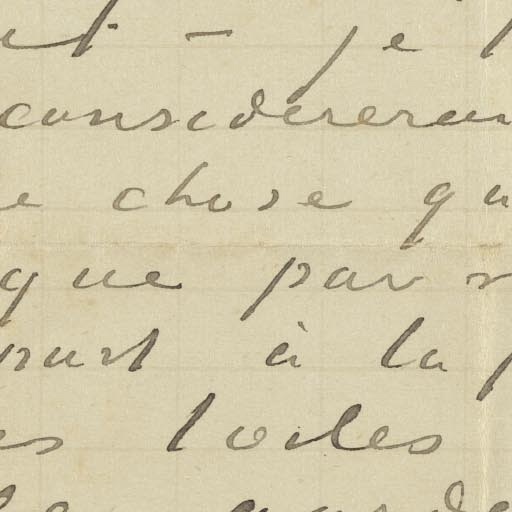 - je
considererai
e chose qu
que par
part à la
es toiles